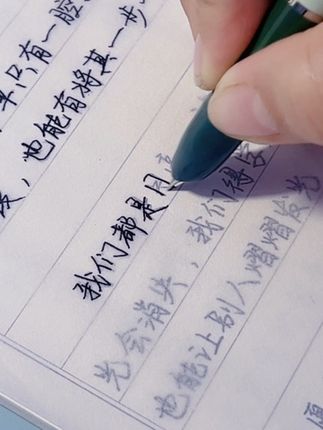 只有一腔
，也能有将其一步
我们都是用
光会消失，我们得
也能让别人熠熠发光